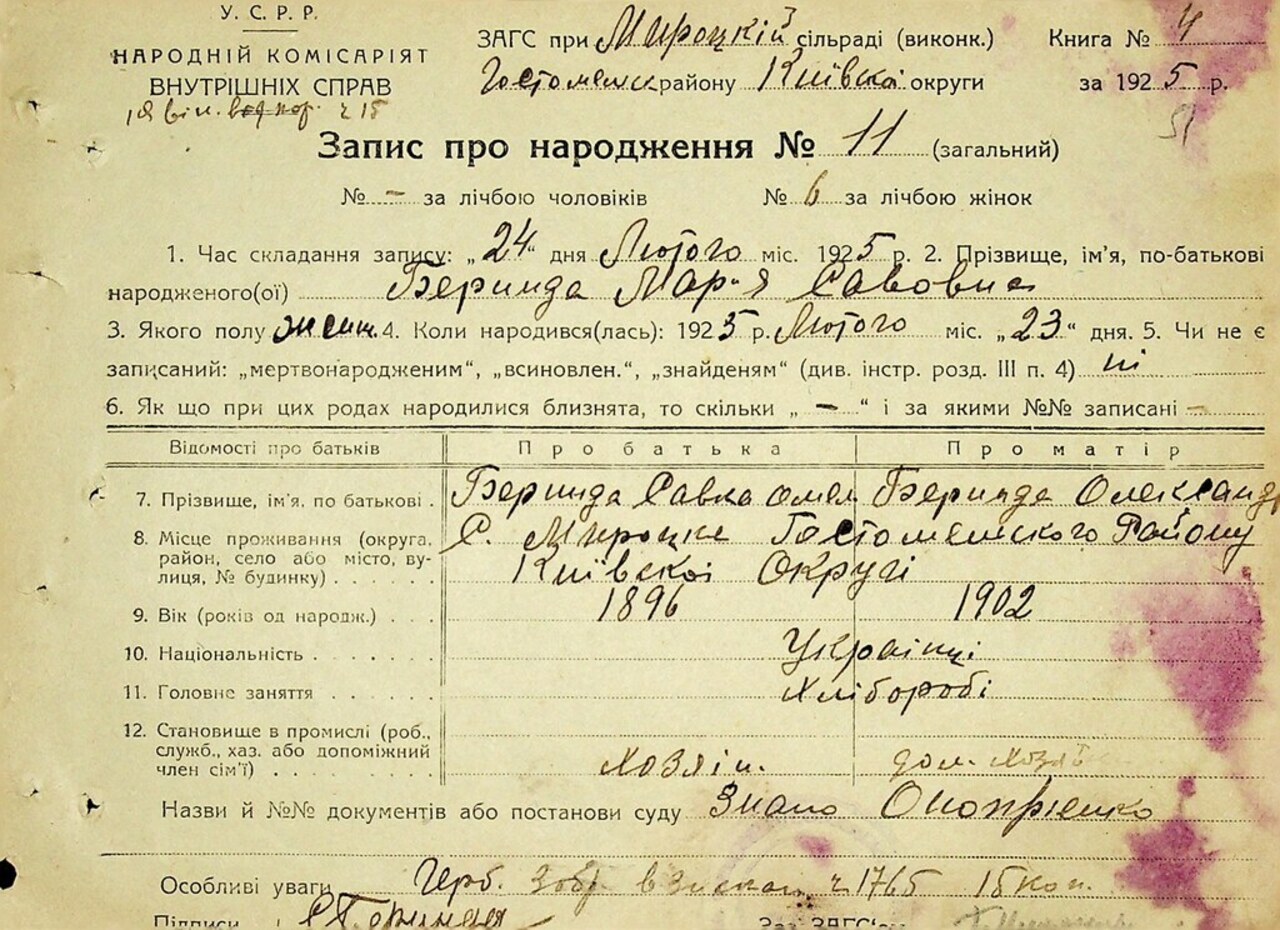 У. С. Р. Р.
НАРОДНІЙ КОМІСАРІЯТ
ВНУТРІШНІХ СПРАВ
ЗАГС при Мироцкій сільраді (виконк.) Книга № 4
Гостомелск району Київскої округи за 1925 р.
51
Запис про народження № 11 (загальний)
№ - за лічбою чоловіків № 6 за лічбою жінок
1. Час складання запису: „24“ дня Лютого міс. 1925 р. 2. Прізвище, ім'я, по-батькові
народженого(ої) Беринда Мар'я Савовна
3. Якого полу жін. 4. Коли народився(лась): 1925 р. Лютого міс. „23“ дня. 5. Чи не є
записаний: „мертвонародженим“, „всиновлен.“, „знайденям“ (див. інстр. розд. III п. 4) ні
6. Як що при цих родах народилися близнята, то скільки „ — “ і за якими №№ записані —
Відомості про батьків Про батька Про матір
7. Прізвище, ім'я, по батькові . Беринда Савка Омел Беринда Олександр
8. Місце проживання (округа, район, село або місто, ву-
лиця, № будинку) . . . . . С. Мироцке Гостомелського Району
Київскої Округі
9. Вік (років од народж.) . . . 1896 1902
10. Національність . . . . . . Українці
11. Головне заняття . . . . . . Хлібороби
12. Становище в промислі (роб.,
служб., хаз. або допоміжний
член сім'ї) . . . . . . . . . Хозяін. дом. хозяї
Назви й №№ документів або постанови суду Знаю Онопрієнко
Особливі уваги Герб. Збор взискан ч 1765 15 коп.
Підписи Зав. ЗАГС'ом